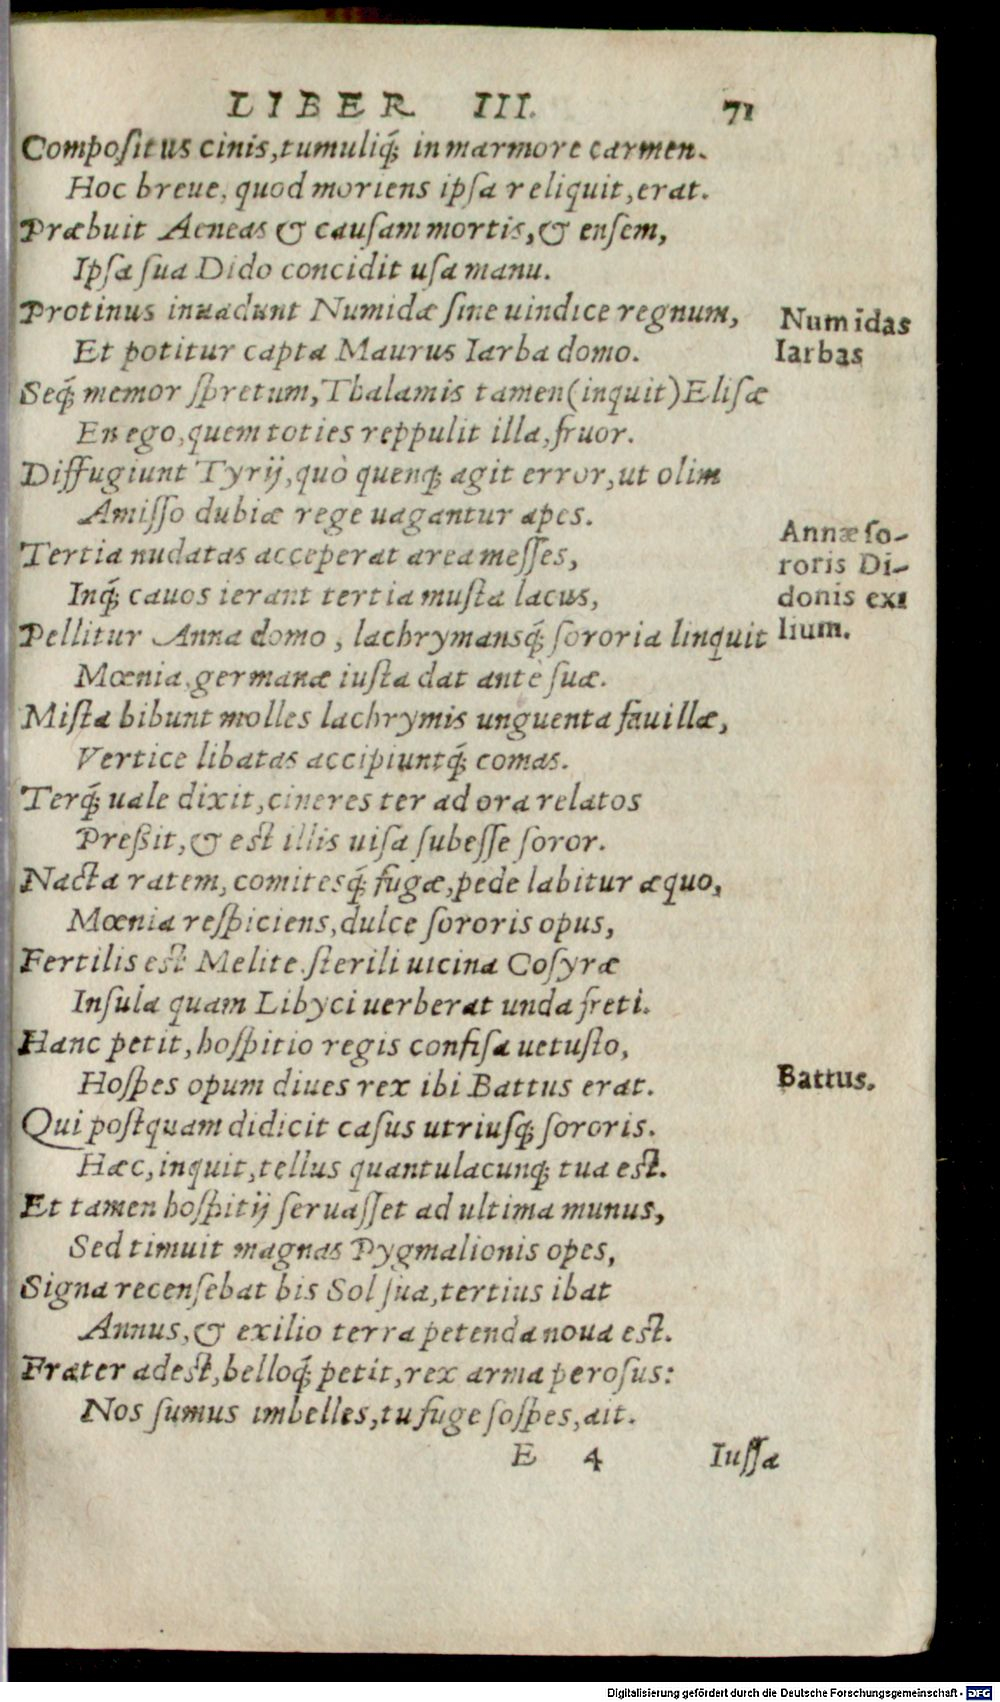 LIBER III. 71
Compositus cinis, tumuliq́; in marmore carmen.
Hoc breue, quod moriens ipsa reliquit, erat.
Præbuit Aeneas & causam mortis, & ensem,
Ipsa sua Dido concidit usa manu.
Protinus inuadunt Numidæ sine uindice regnum,
Numidas
Et potitur capta Maurus Iarba domo.
Iarbas
Seq́; memor spretum, Thalamis tamen (inquit) Elisæ
En ego, quem toties reppulit illa, fruor.
Diffugiunt Tyrij, quò quenq; agit error, ut olim
Amisso dubiæ rege uagantur apes.
Annæ so-
Tertia nudatas acceperat area messes,
roris Di-
Inq́; cauos ierant tertia musta lacus,
donis exi
Pellitur Anna domo, lachrymansq́; sororia linquit
lium.
Mœnia, germanæ iusta dat antè suæ.
Mista bibunt molles lachrymis unguenta fauillæ,
Vertice libatas accipiuntq́; comas.
Terq́; uale dixit, cineres ter ad ora relatos
Preßit, & est illis uisa subesse soror.
Nacta ratem, comitesq́; fugæ, pede labitur æquo,
Mœnia respiciens, dulce sororis opus,
Fertilis est Melite. sterili uicina Cosyræ
Insula quam Libyci uerberat unda freti.
Hanc petit, hospitio regis confisa uetusto,
Hospes opum diues rex ibi Battus erat.
Battus.
Qui postquam didicit casus utriusq; sororis.
Hæc, inquit, tellus quantulacunq; tua est.
Et tamen hospitij seruasset ad ultima munus,
Sed timuit magnas Pygmalionis opes,
Signa recensebat bis Sol sua, tertius ibat
Annus, & exilio terra petenda noua est.
Frater adest, belloq́; petit, rex arma perosus:
Nos sumus imbelles, tu fuge sospes, ait.
E 4 Iussa
Digitalisierung gefördert durch die Deutsche Forschungsgemeinschaft - DFG